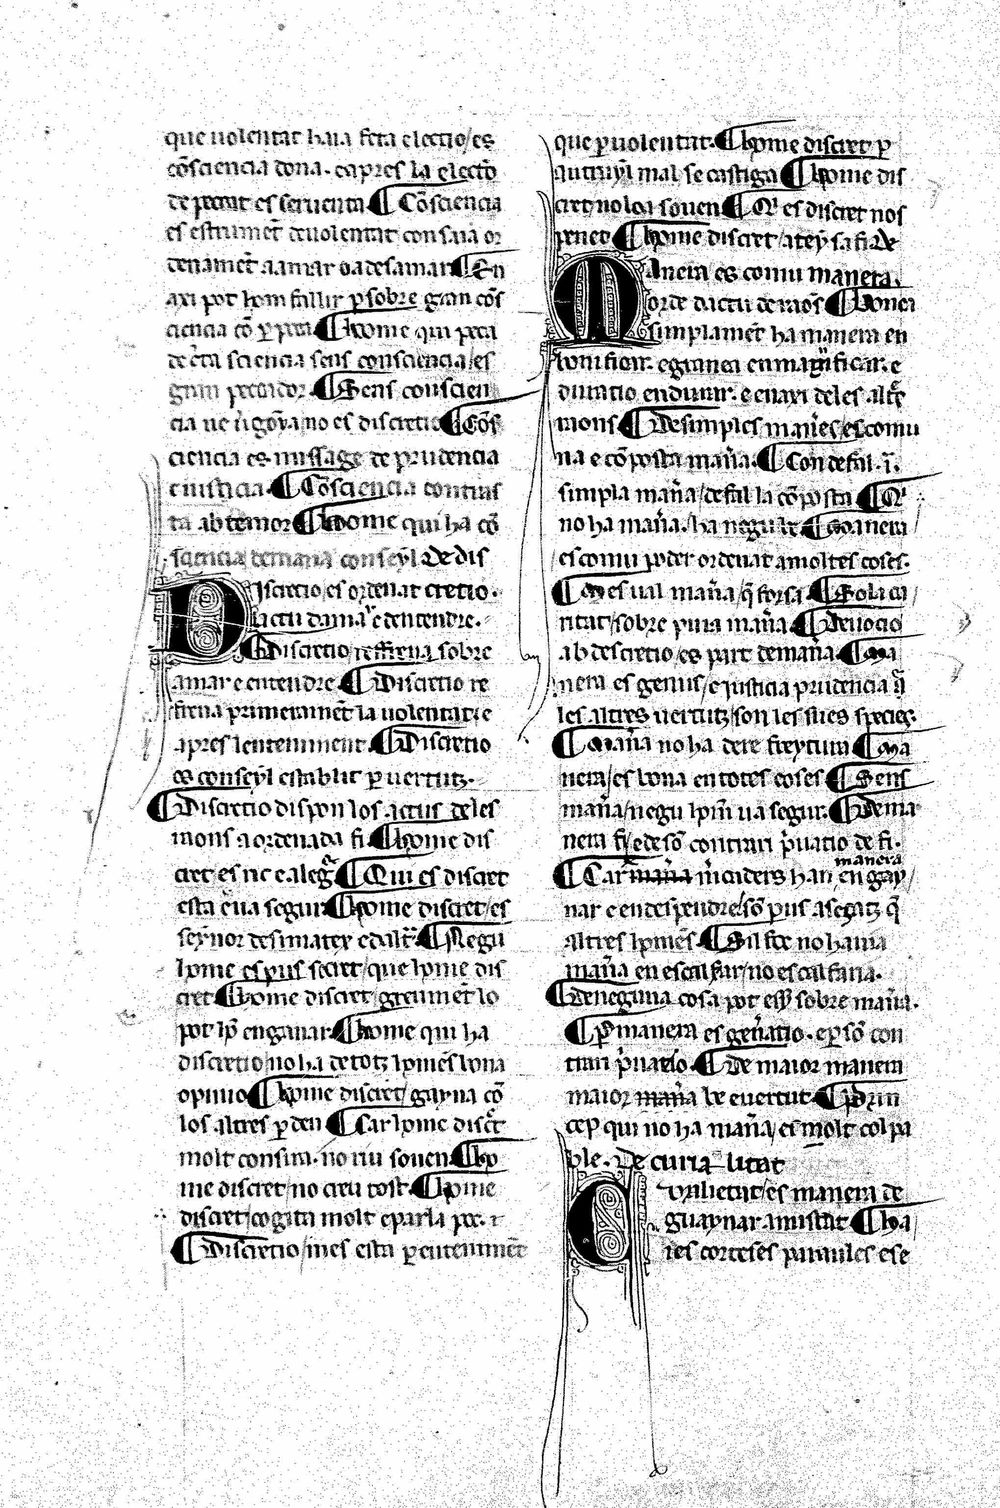 que uolentat haia feta electio/es
cōsciencia dona. e apres la electo
de pecat es seruenta ¶ Cōsciencia
es estrumēt de uolentat con sa iā or
denamēt a amar o a desamar ¶ En
axi pot hom fallir ꝑ sobre gran cōs
ciencia cō ꝑ poca ¶ home qui peca
de cͬta sciencia sens consciencia/es
gran pecador. ¶ Sens conscien
cia ne no es discretio ¶ Cōs
ciencia es missatge de prudencia
e iusticia. ¶ Cōsciencia contras
ta ab temor ¶ home qui ha cō
sciencia demana conseyl De dis
Discretio/es ordenat cretio.
actu damar e dentendre.
¶ Discretio/reffrena sobre
amar e entendre ¶ Discretio re
frena primeramēt la uolentat/e
apres lenteniment ¶ Discretio
es conseyl establit ꝑ uertutz.
¶ Discretio dispon los actus de les
mons a ordenada fi ¶ home dis
cret/es ric e alegͣ ¶ Qui es discret
esta e ua segur ¶ home discret/es
seyͬnor de si mateix e dalt ¶ Negu
home es pus secret/que home dis
cret ¶ home discret/greumēt lo
pot hō enganar ¶ home qui ha
discretio/no ha de totz homēs bona
opinio ¶ home discret/gayna cō
los altres ꝑden ¶ Car home discͬt
molt consira. no riu souen ¶ ho
me discret/no creu tost. ¶ home
discret/cogita molt e parla poc.
¶ Discretio/mes esta ꝑ enteniment
que ꝑ uolentat. ¶ home discret ꝑ
autruyl mal se castiga ¶ home dis
cret no loa souen ¶ Qͥ es discret nos
penet ¶ home discret/ateyͬ sa fi De
Manera es comu manera.
orde dactu de raōs ¶ bonea
simplamēt ha manera en
bonificar. e granea en magnificar. e
duratio en durar. e enaxi de les altͬ
mons ¶ De simples maͬnes/es comu
na e cōposta maña. ¶ Con defal .i.
simpla maña/defal la cōposta ¶ Qͥ
no ha maña. ha negu ¶ Manera
es comu poder ordenat a moltes coses.
¶ Mes ual maña/q̄ forsa ¶ Sola ca
ritat/sobre puia maña ¶ Deuocio
ab descretio/es part de maña ¶ Ma
nera es genus/e iusticia prudencia q̄
les altres uertutz/son les sues species.
¶ Maña no ha dere freytura ¶ Ma
nera/es bona en totes coses ¶ Sens
maña/negu hom ua segur. ¶ De ma
nera fi/e de sō contrari priuatio de fi.
¶ Car maña mcaders han manera en gay
nar e en despendre/sō pus assegatz q̄
altres homēs ¶ Sil foc no hauia
maña en escalfar/no escalfaria.
¶ De neguna cosa pot esser sobre maña.
¶ Ꝑ manera es geñatio. e ꝑ sō con
trari priuatio. ¶ De maior manera
maior maña be e uertut. ¶ Prin
cep qui no ha maña/es molt colpa
ble. De curialitat
Curialitat/es manera de
guaynar amistat ¶ ha
ies corteses paraules e se